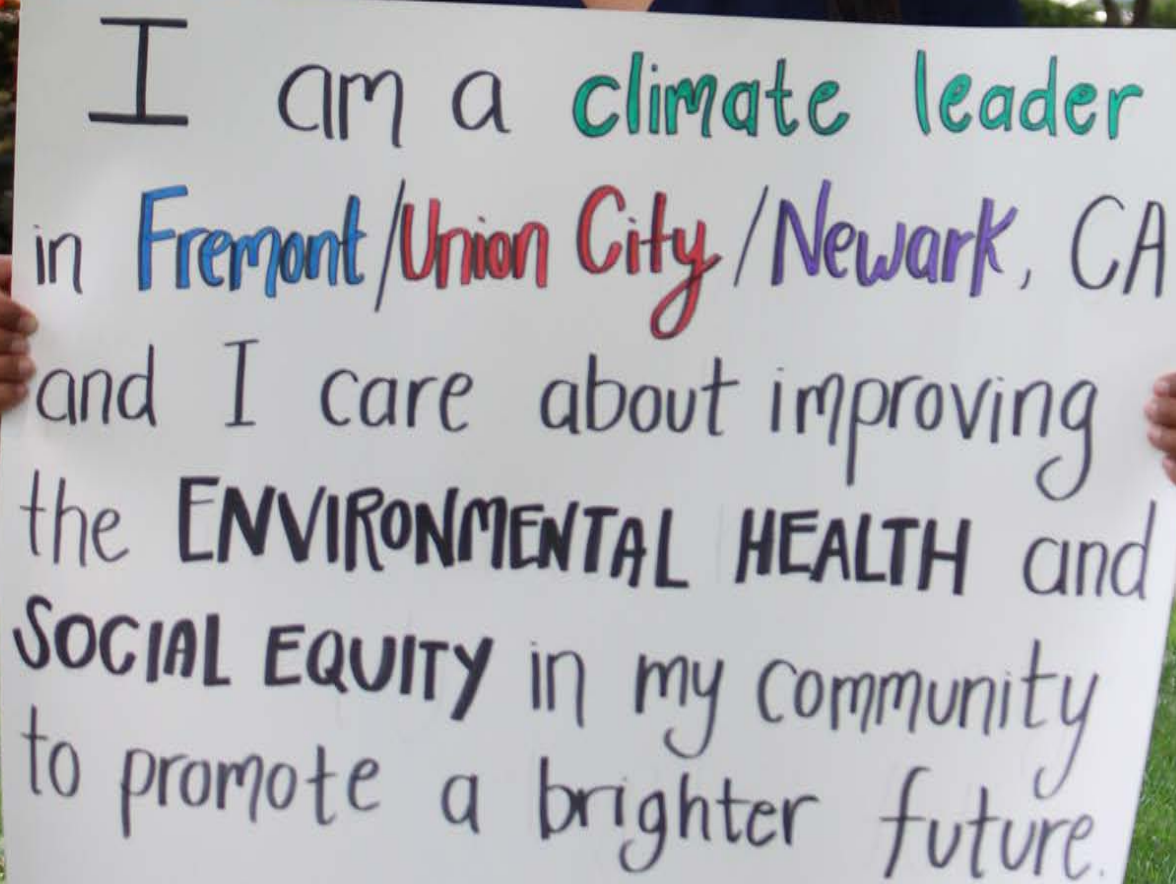 I am a climate leader
in Fremont/Union City/Newark, CA
and I care about improving
the ENVIRONMENTAL HEALTH and
SOCIAL EQUITY in my community
to promote a brighter future.